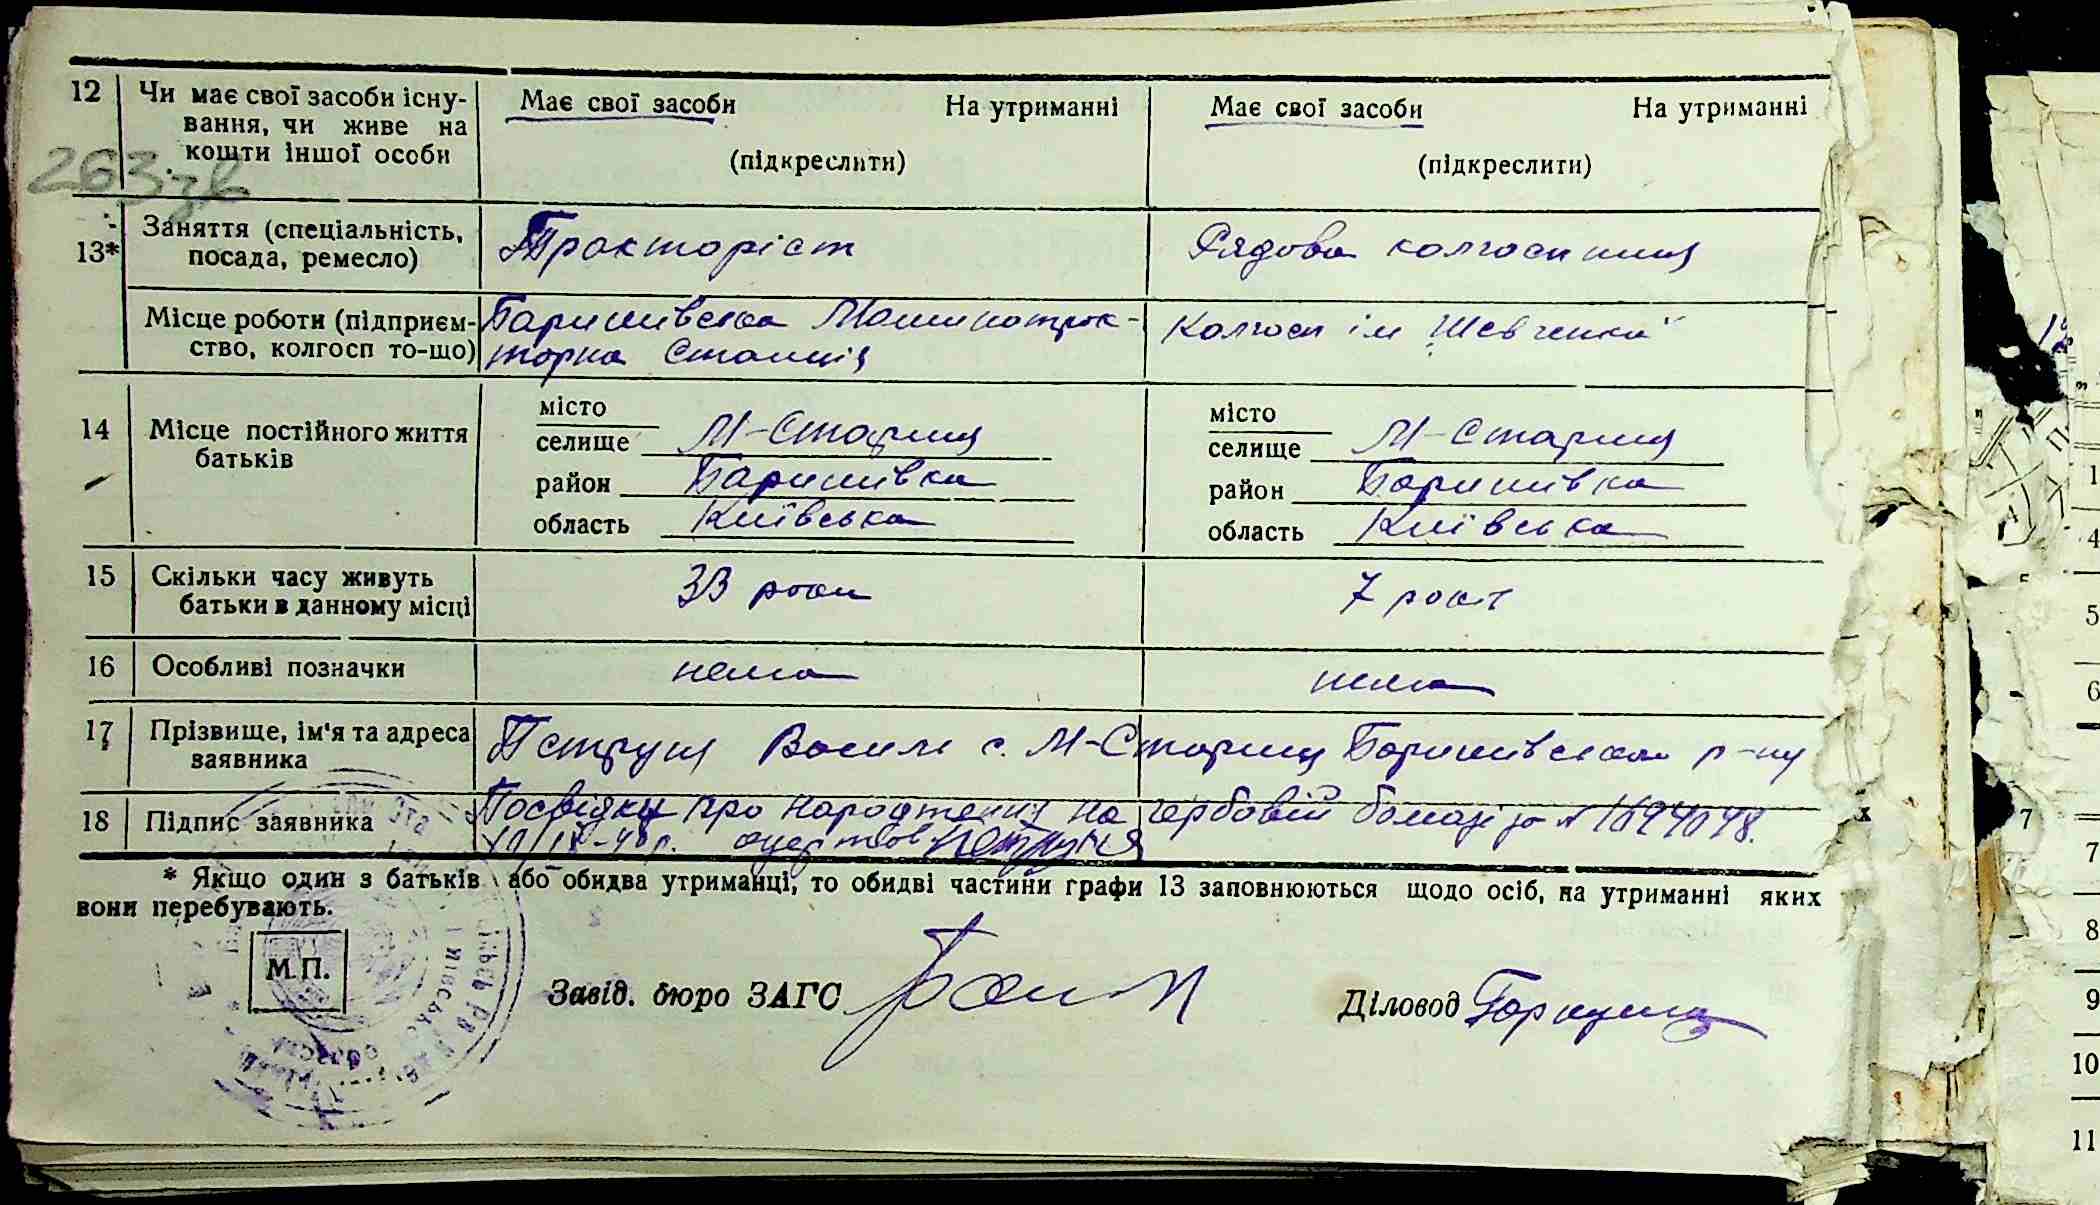 12 Чи має свої засоби існу- Має свої засоби На утриманні Має свої засоби На утриманні
вання, чи живе на
кошти іншої особи (підкреслити) (підкреслити)
263зв
13* Заняття (спеціальність, Тракторіст Рядова колгоспниця
посада, ремесло)
Місце роботи (підприєм- Баришивська Машинотрак- Колгосп ім Шевченка
ство, колгосп то-що) торна Станція
14 Місце постійного життя батьків
місто місто
селище М-Стариця селище М-Стариця
район Баришивка район Баришивка
область Київська область Київська
15 Скільки часу живуть 33 роки 7 років
батьки в данному місці
16 Особливі позначки нема нема
17 Прізвище, ім'я та адреса Петруня Василь с. М-Стариця Баришивського р-ну
заявника
Посвідку про народження на гербовій бомазі за № 1694098.
18 Підпис заявника
* Якщо один з батьків або обидва утриманці, то обидві частини графи 13 заповнюються щодо осіб, на утриманні яких
вони перебувають.
М.П.
Завід. бюро ЗАГС Діловод
1
4
5
6
7
7
8
9
10
11